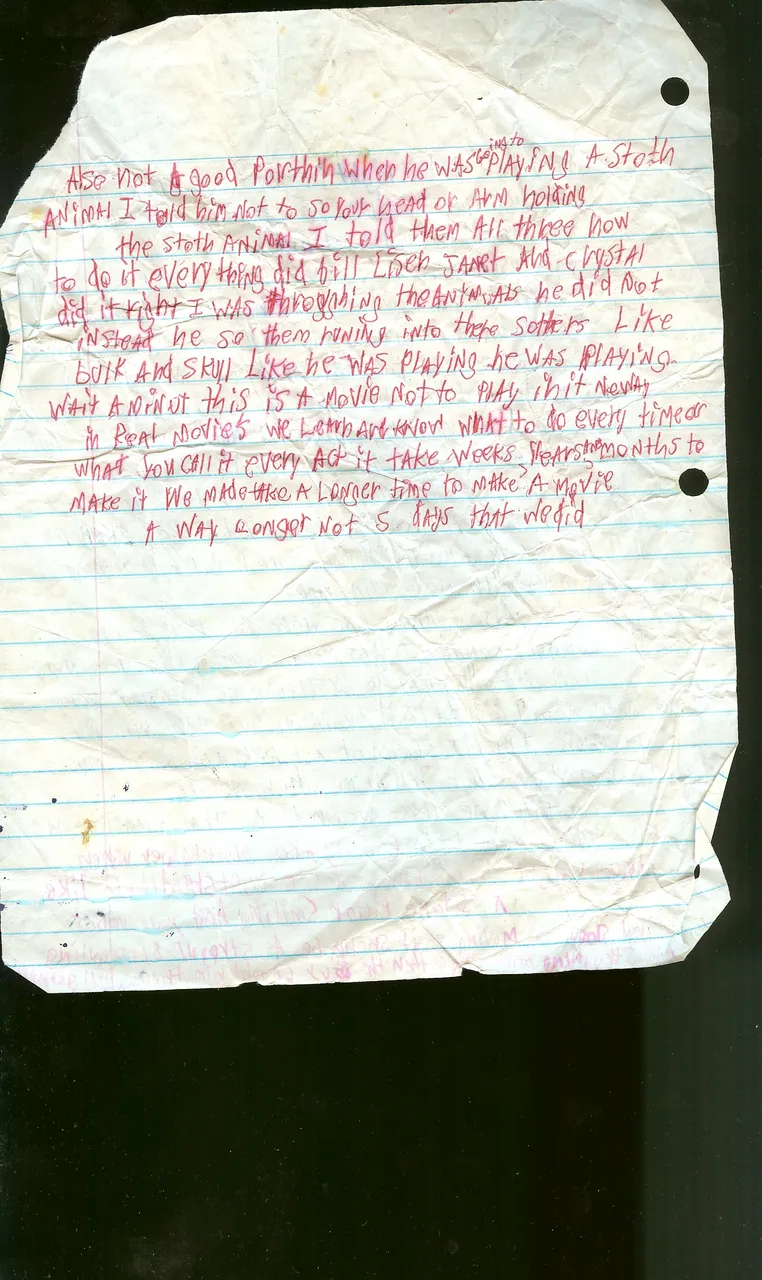 Also not A good Porthin when he WAS going to PlAying A Stoth
ANiMAl I told him Not to so Your head or Arm holding
the stoth ANiMAl I told them All three how
to do it every thing did bill Lisen JANet And crystal
did it right I WAS throghing the ANiMAls he did Not
insteAd he so them runing into there sothers Like
bulk And Skull Like he WAS PlAying he WAS PlAying
WAit A MiNut this is A Movie Not to PlAy in it NewAy
in ReAl Movies we LeArn And know whAt to do every time or
whAt You CAll it every Act it tAke weeks, YeArs and MONths to
MAke it We MAde tAke A Longer time to MAke A Movie
A WAy Longer Not 5 dAys thAt We did